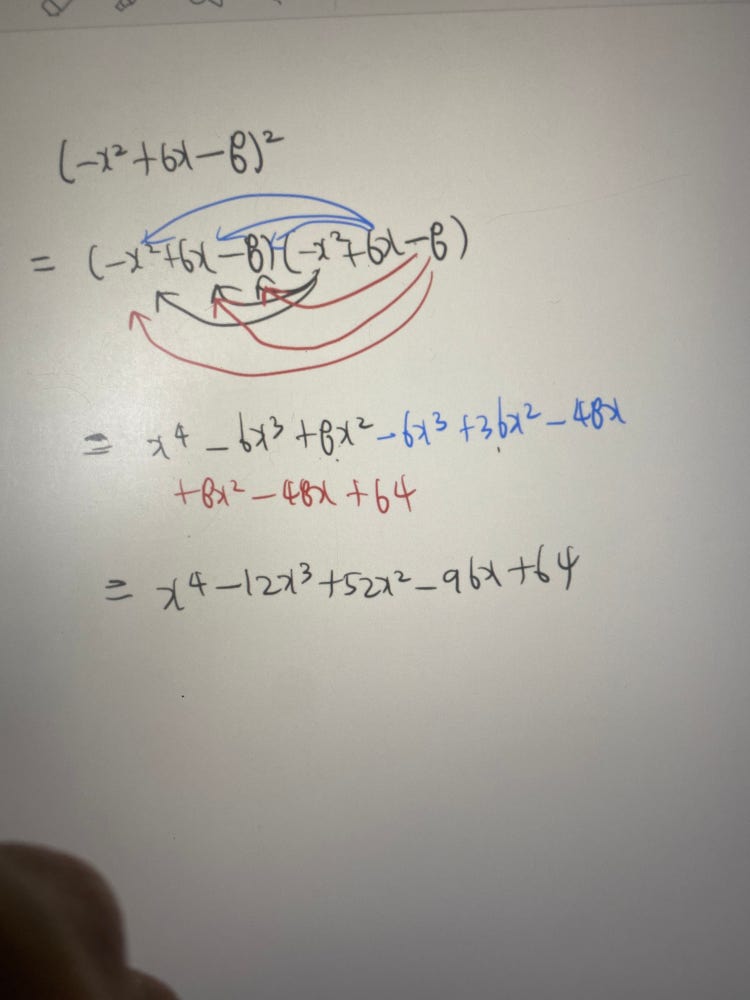 (-x²+6x-8)²
= (-x²+6x-8)(-x²+6x-8)
= x⁴-6x³+8x²-6x³+36x²-48x
+8x²-48x+64
= x⁴-12x³+52x²-96x+64